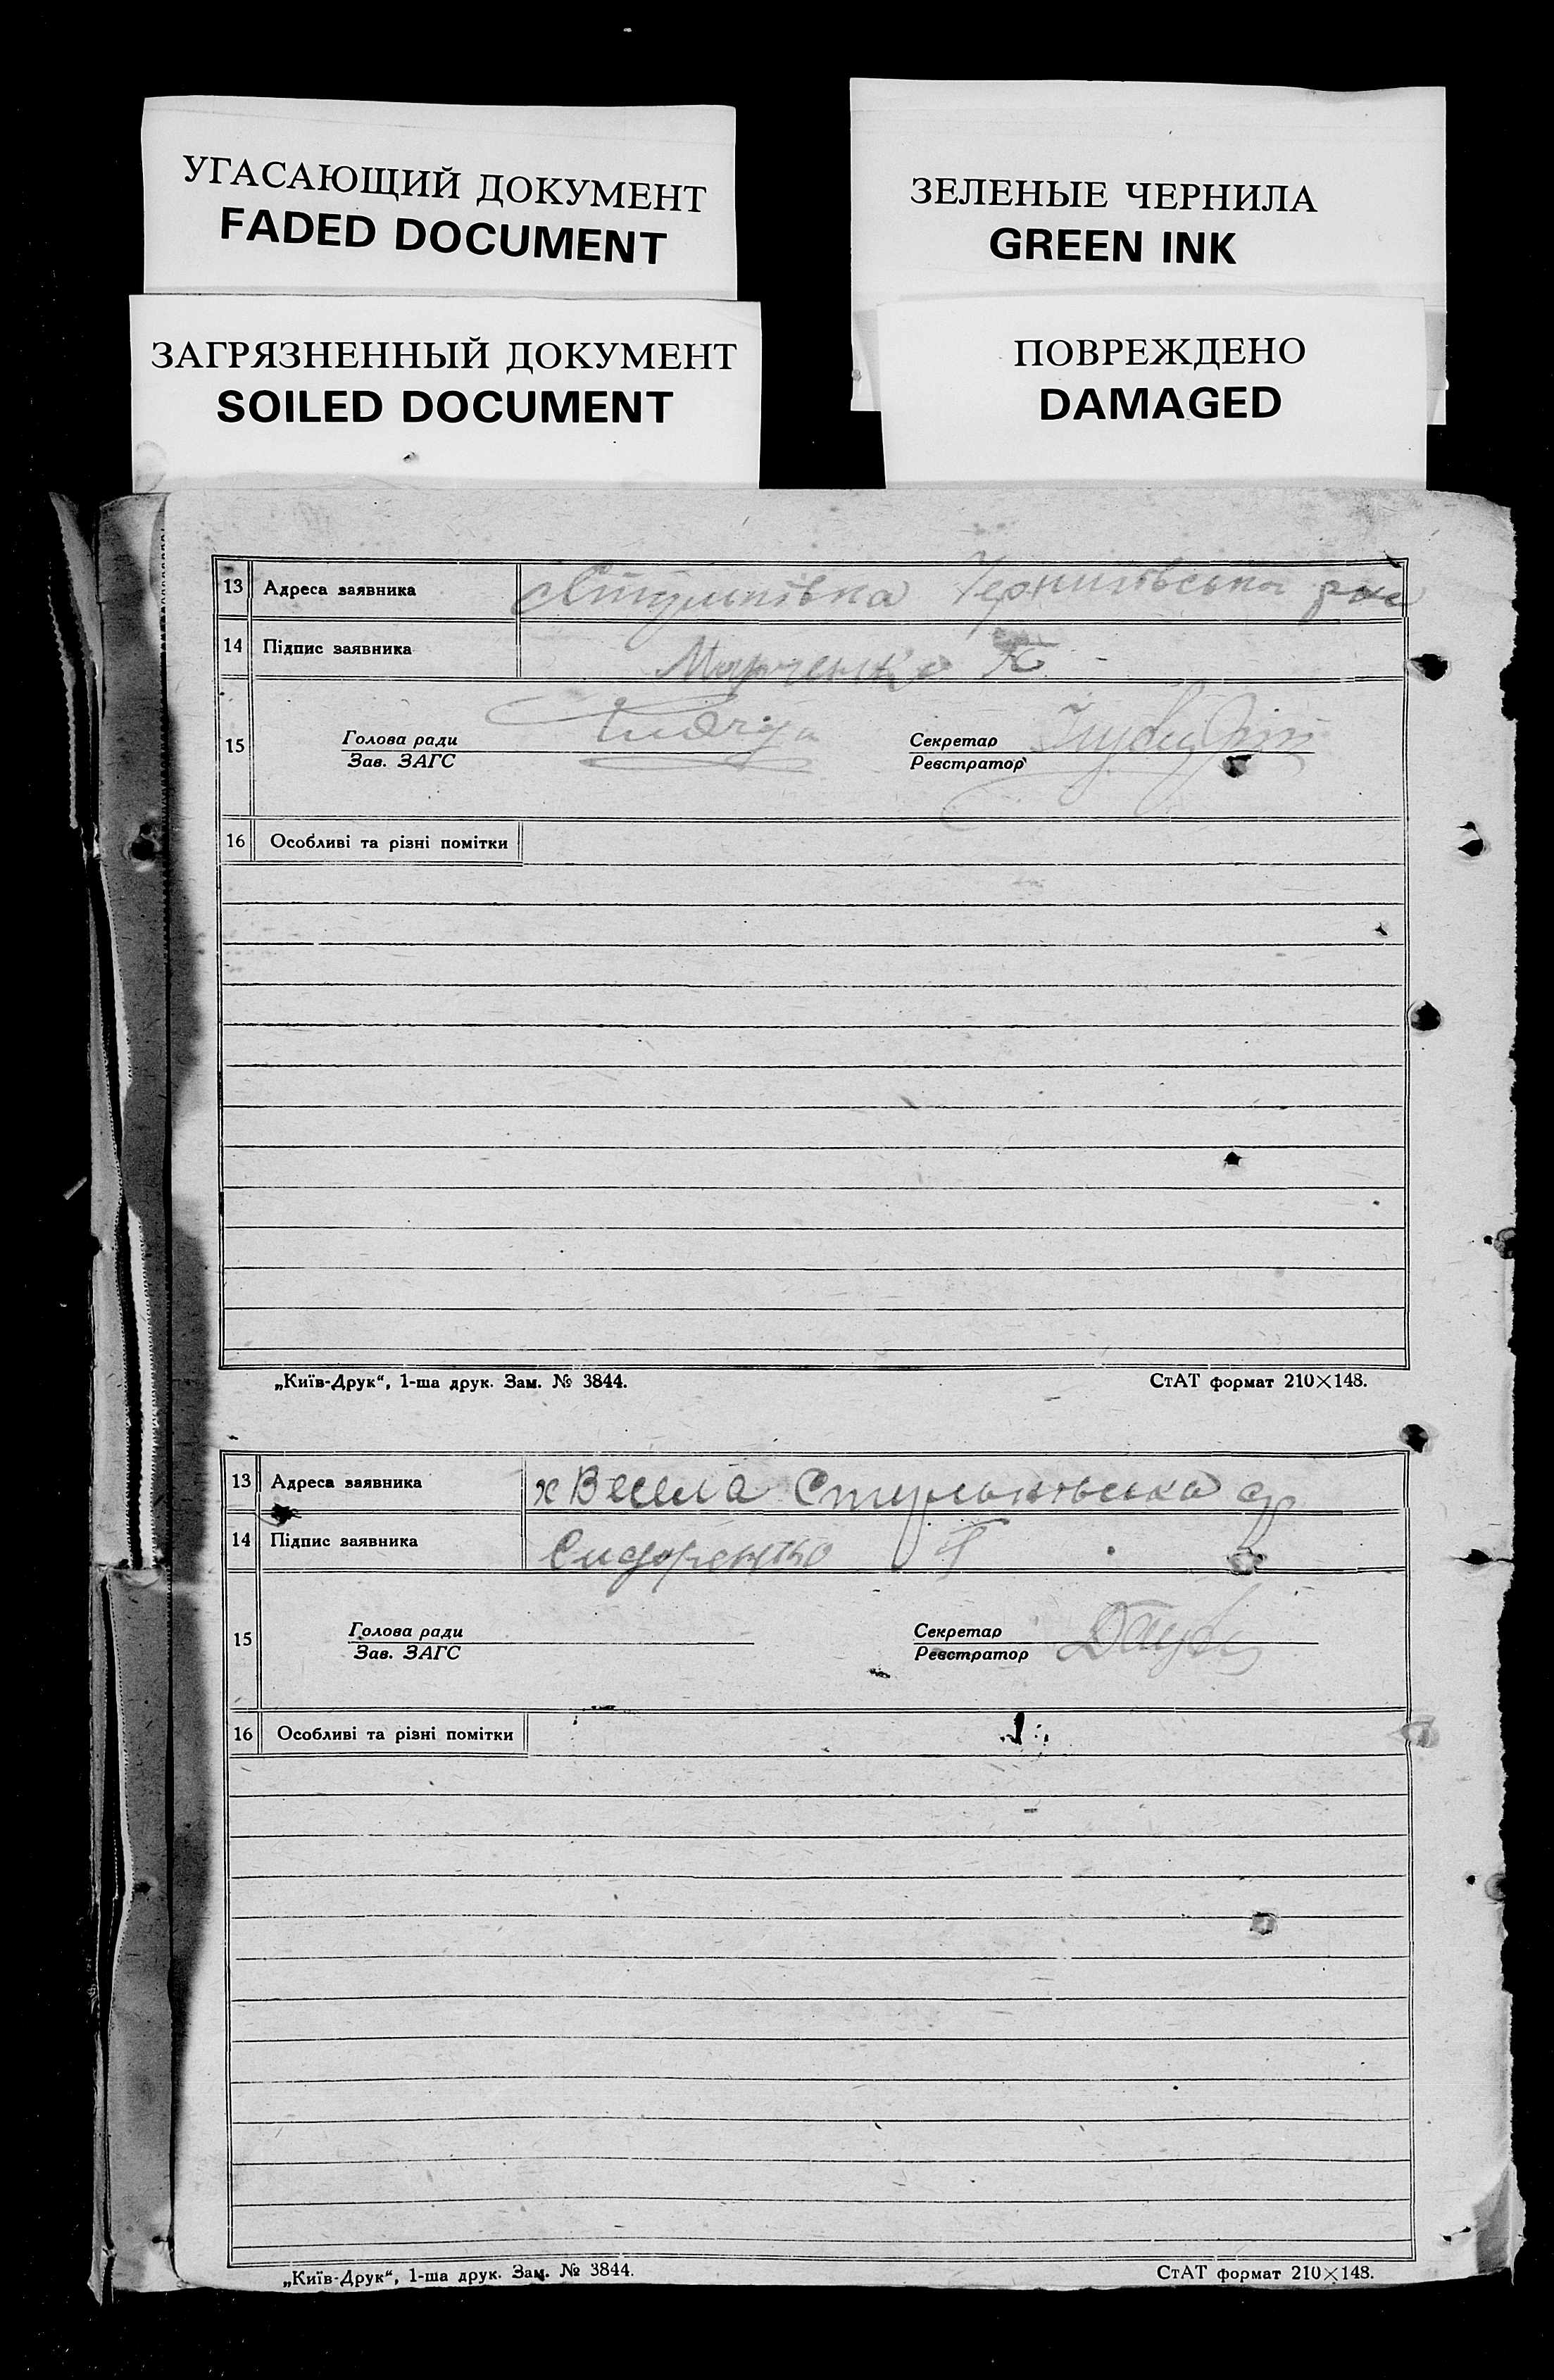 УГАСАЮЩИЙ ДОКУМЕНТ
FADED DOCUMENT
ЗЕЛЕНЫЕ ЧЕРНИЛА
GREEN INK
ЗАГРЯЗНЕННЫЙ ДОКУМЕНТ
SOILED DOCUMENT
ПОВРЕЖДЕНО
DAMAGED
13 Адреса заявника
14 Підпис заявника Марченко
15 Голова ради
Зав. ЗАГС
Секретар
Реєстратор
16 Особливі та різні помітки
„Київ-Друк“, 1-ша друк. Зам. № 3844.
СтАТ формат 210×148.
13 Адреса заявника х Весела
14 Підпис заявника Сидоренко
15 Голова ради
Зав. ЗАГС
Секретар
Реєстратор
16 Особливі та різні помітки
„Київ-Друк“, 1-ша друк. Зам. № 3844.
СтАТ формат 210×148.